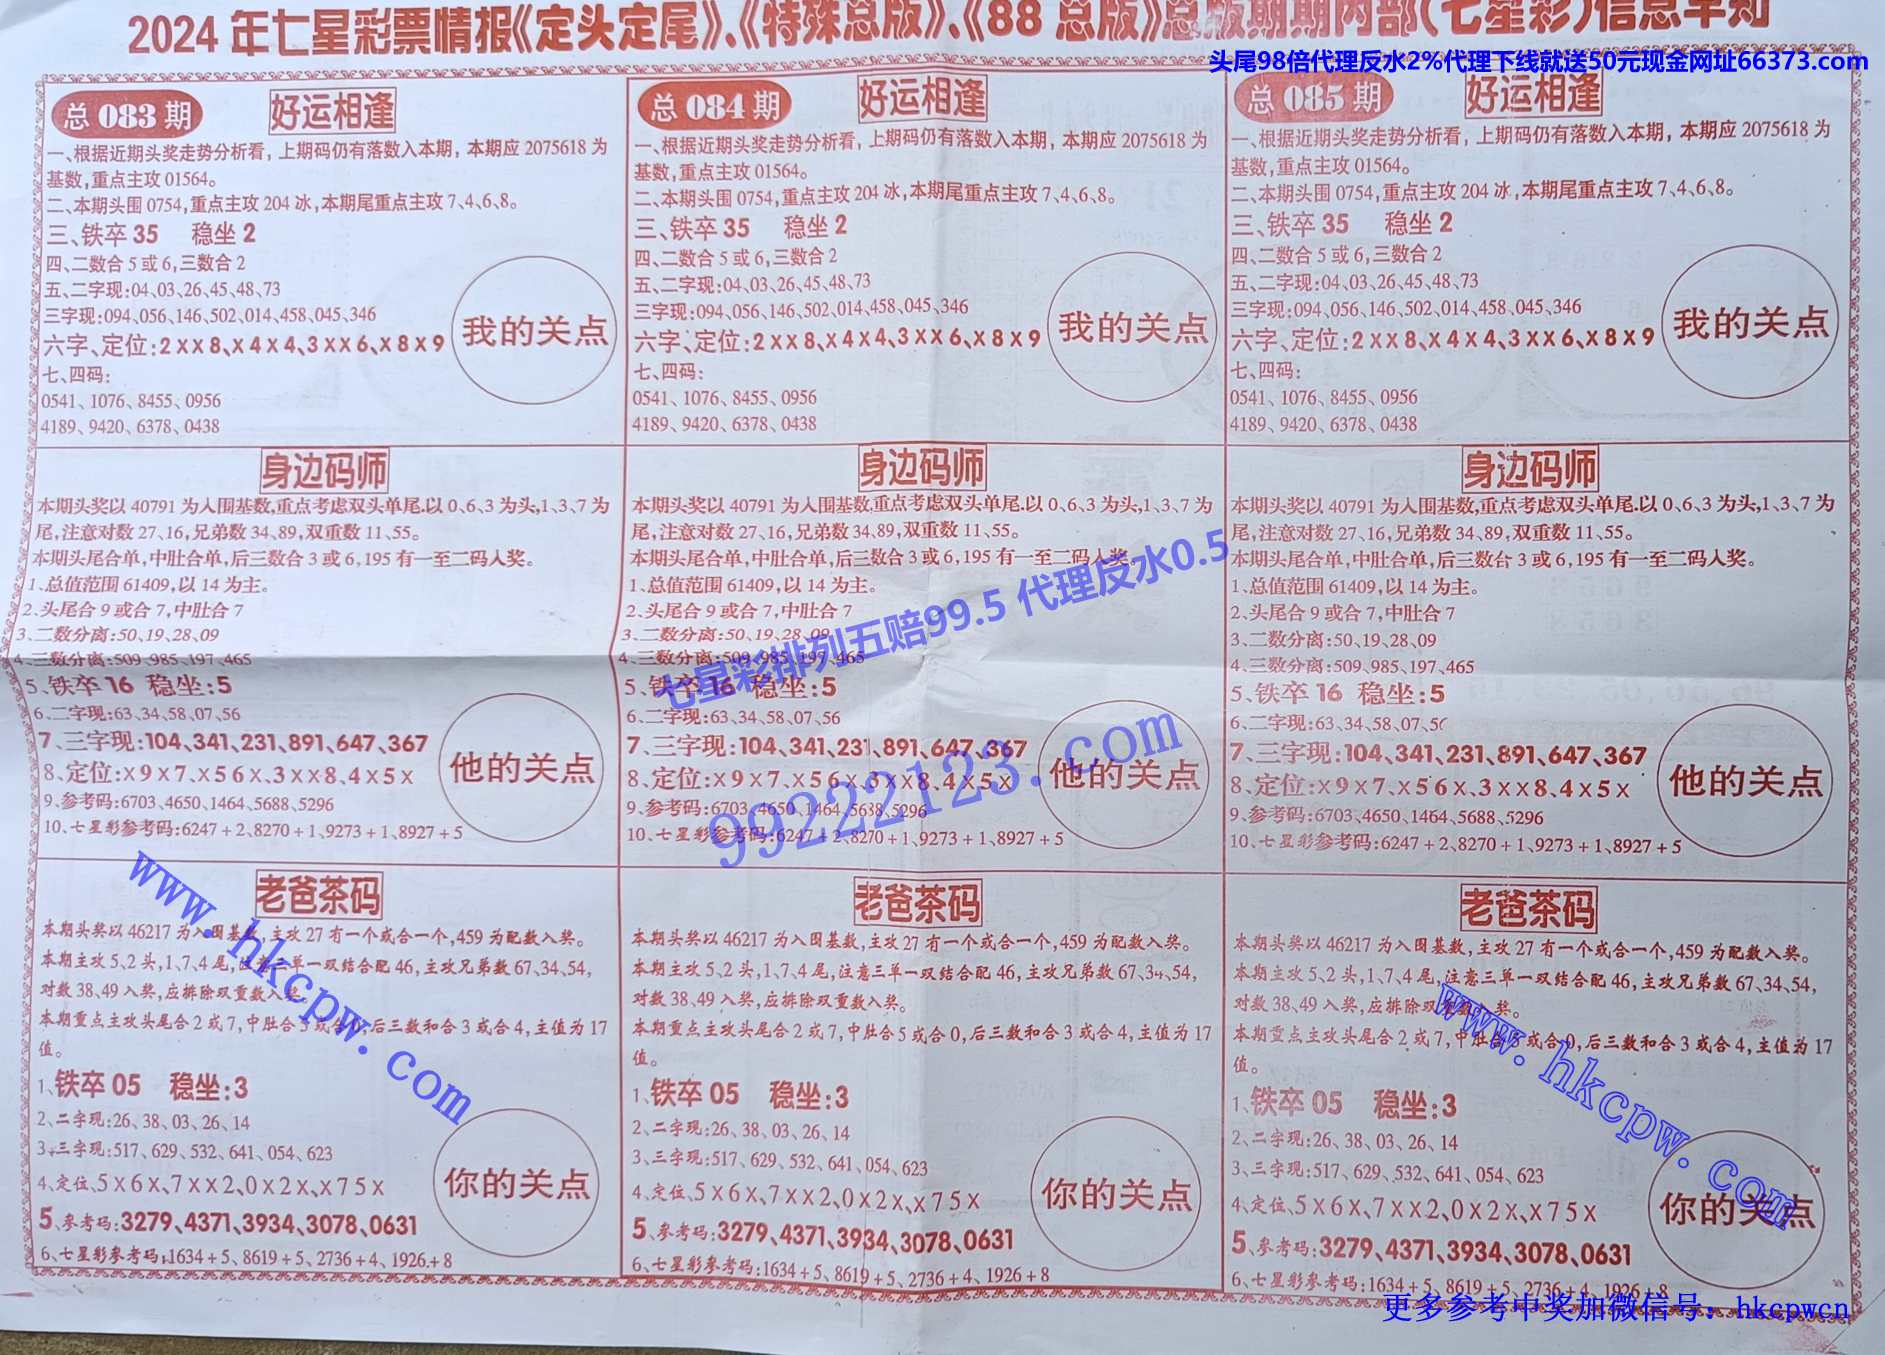 2024年七星彩票情报《定头定尾》、《特殊总版》、《88总版》总版期期内部(七星彩)信息早知
头尾98倍代理反水2%代理下线就送50元现金网址66373.com
总 083 期 好运相逢
一、根据近期头奖走势分析看，上期码仍有落数入本期，本期应 2075618 为
基数,重点主攻 01564。
二、本期头围 0754,重点主攻 204 冰,本期尾重点主攻 7、4、6、8。
三、铁卒 35 稳坐 2
四、二数合 5 或 6,三数合 2
五、二字现:04、03、26、45、48、73
三字现:094、056、146、502、014、458、045、346
六字、定位:2××8、×4×4、3××6、×8×9
七、四码:
0541、1076、8455、0956
4189、9420、6378、0438
我的关点
身边码师
本期头奖以 40791 为入围基数,重点考虑双头单尾.以 0、6、3 为头,1、3、7 为
尾,注意对数 27、16,兄弟数 34、89,双重数 11、55。
本期头尾合单,中肚合单,后三数合 3 或 6,195 有一至二码入奖。
1、总值范围 61409,以 14 为主。
2、头尾合 9 或合 7,中肚合 7
3、二数分离:50、19、28、09
4、三数分离:509、985、197、465
5、铁卒 16 稳坐:5
6、二字现:63、34、58、07、56
7、三字现:104、341、231、891、647、367
8、定位:×9×7、×56×、3××8、4×5×
9、参考码:6703、4650、1464、5688、5296
10、七星彩参考码:6247+2、8270+1、9273+1、8927+5
他的关点
老爸茶码
本期头奖以 46217 为入围基数,主攻 27 有一个或合一个,459 为配数入奖。
本期主攻 5、2 头,1、7、4 尾,注意三单一双结合配 46,主攻兄弟数 67、34、54,
对数 38、49 入奖,应排除双重数入奖。
本期重点主攻头尾合 2 或 7,中肚合 5 或合 0,后三数和合 3 或合 4,主值为 17
值。
1、铁卒 05 稳坐:3
2、二字现:26、38、03、26、14
3、三字现:517、629、532、641、054、623
4、定位、5×6×、7××2、0×2×、×75×
5、参考码:3279、4371、3934、3078、0631
6、七星彩参考码:1634+5、8619+5、2736+4、1926+8
你的关点
总 084 期 好运相逢
一、根据近期头奖走势分析看，上期码仍有落数入本期，本期应 2075618 为
基数,重点主攻 01564。
二、本期头围 0754,重点主攻 204 冰,本期尾重点主攻 7、4、6、8。
三、铁卒 35 稳坐 2
四、二数合 5 或 6,三数合 2
五、二字现:04、03、26、45、48、73
三字现:094、056、146、502、014、458、045、346
六字、定位:2××8、×4×4、3××6、×8×9
七、四码:
0541、1076、8455、0956
4189、9420、6378、0438
我的关点
身边码师
本期头奖以 40791 为入围基数,重点考虑双头单尾.以 0、6、3 为头,1、3、7 为
尾,注意对数 27、16,兄弟数 34、89,双重数 11、55。
本期头尾合单,中肚合单,后三数合 3 或 6,195 有一至二码入奖。
1、总值范围 61409,以 14 为主。
2、头尾合 9 或合 7,中肚合 7
3、二数分离:50、19、28、09
4、三数分离:509、985、197、465
5、铁卒 16 稳坐:5
6、二字现:63、34、58、07、56
7、三字现:104、341、231、891、647、367
8、定位:×9×7、×56×、3××8、4×5×
9、参考码:6703、4650、1464、5688、5296
10、七星彩参考码:6247+2、8270+1、9273+1、8927+5
他的关点
老爸茶码
本期头奖以 46217 为入围基数,主攻 27 有一个或合一个,459 为配数入奖。
本期主攻 5、2 头,1、7、4 尾,注意三单一双结合配 46,主攻兄弟数 67、34、54,
对数 38、49 入奖,应排除双重数入奖。
本期重点主攻头尾合 2 或 7,中肚合 5 或合 0,后三数和合 3 或合 4,主值为 17
值。
1、铁卒 05 稳坐:3
2、二字现:26、38、03、26、14
3、三字现:517、629、532、641、054、623
4、定位、5×6×、7××2、0×2×、×75×
5、参考码:3279、4371、3934、3078、0631
6、七星彩参考码:1634+5、8619+5、2736+4、1926+8
你的关点
总 085 期 好运相逢
一、根据近期头奖走势分析看，上期码仍有落数入本期，本期应 2075618 为
基数,重点主攻 01564。
二、本期头围 0754,重点主攻 204 冰,本期尾重点主攻 7、4、6、8。
三、铁卒 35 稳坐 2
四、二数合 5 或 6,三数合 2
五、二字现:04、03、26、45、48、73
三字现:094、056、146、502、014、458、045、346
六字、定位:2××8、×4×4、3××6、×8×9
七、四码:
0541、1076、8455、0956
4189、9420、6378、0438
我的关点
身边码师
本期头奖以 40791 为入围基数,重点考虑双头单尾.以 0、6、3 为头,1、3、7 为
尾,注意对数 27、16,兄弟数 34、89,双重数 11、55。
本期头尾合单,中肚合单,后三数合 3 或 6,195 有一至二码入奖。
1、总值范围 61409,以 14 为主。
2、头尾合 9 或合 7,中肚合 7
3、二数分离:50、19、28、09
4、三数分离:509、985、197、465
5、铁卒 16 稳坐:5
6、二字现:63、34、58、07、56
7、三字现:104、341、231、891、647、367
8、定位:×9×7、×56×、3××8、4×5×
9、参考码:6703、4650、1464、5688、5296
10、七星彩参考码:6247+2、8270+1、9273+1、8927+5
他的关点
老爸茶码
本期头奖以 46217 为入围基数,主攻 27 有一个或合一个,459 为配数入奖。
本期主攻 5、2 头,1、7、4 尾,注意三单一双结合配 46,主攻兄弟数 67、34、54,
对数 38、49 入奖,应排除双重数入奖。
本期重点主攻头尾合 2 或 7,中肚合 5 或合 0,后三数和合 3 或合 4,主值为 17
值。
1、铁卒 05 稳坐:3
2、二字现:26、38、03、26、14
3、三字现:517、629、532、641、054、623
4、定位、5×6×、7××2、0×2×、×75×
5、参考码:3279、4371、3934、3078、0631
6、七星彩参考码:1634+5、8619+5、2736+4、1926+8
你的关点
七星彩排列五赔99.5 代理反水0.5
99222123.com
www.hkcpw.com
www.hkcpw.com
更多参考中奖加微信号：hkcpwcn